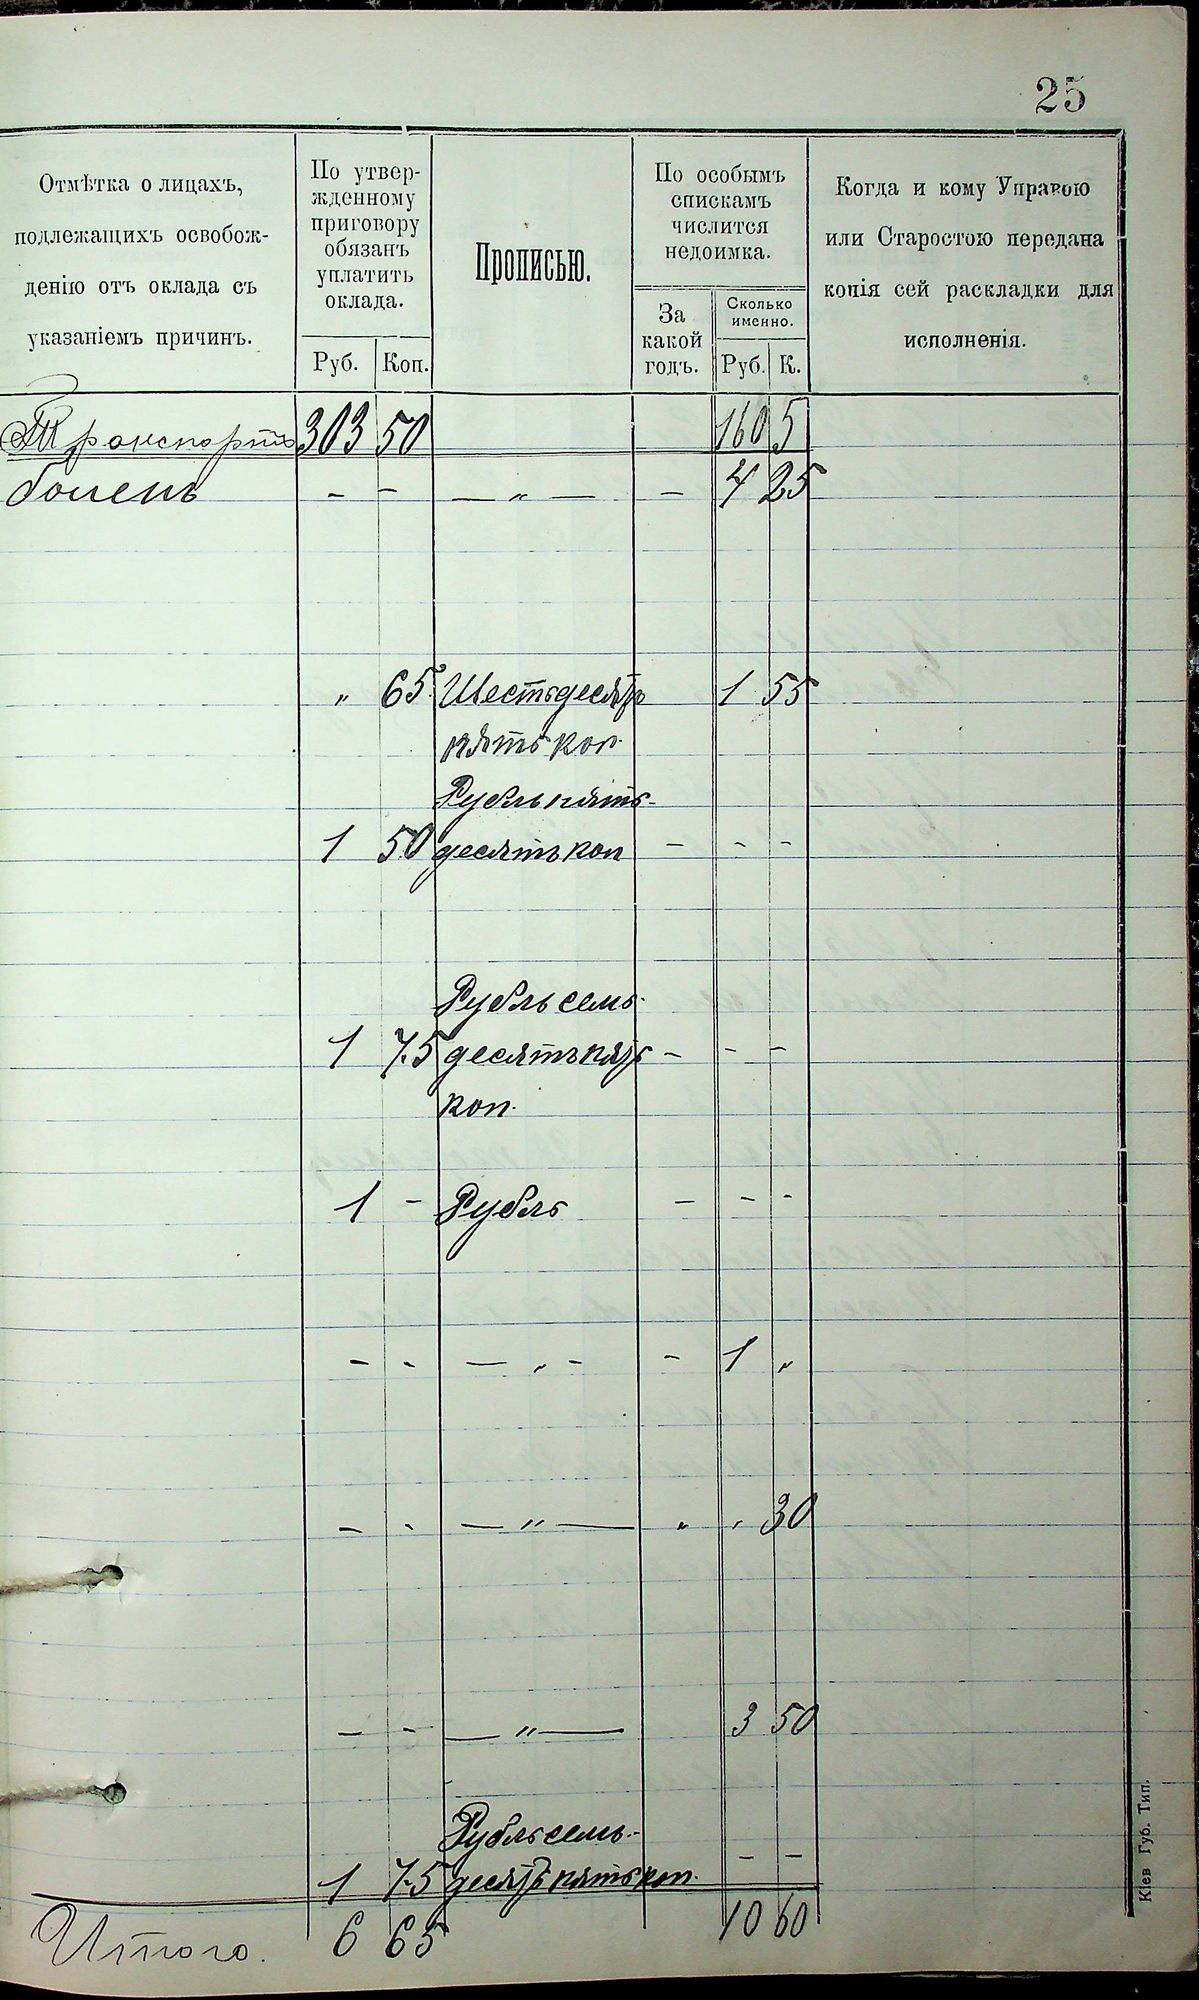 25
Отмѣтка о лицахъ,
подлежащихъ освобож-
денію отъ оклада съ
указаніемъ причинъ.
По утвер-
жденному
приговору
обязанъ
уплатить
оклада.
Руб. Коп.
Прописью.
По особымъ
спискамъ
числится
недоимка.
За
какой
годъ.
Сколько
именно.
Руб. К.
Когда и кому Управою
или Старостою передана
копія сей раскладки для
исполненія.
Транспортъ 303 50 160 5
боленъ - - — „ — - 4 25
„ 65 Шестьдесятъ 1 55
пять коп.
Рубль пять-
1 50 десятъ коп - - -
Рубль семь-
1 75 десятъ пять - - -
коп.
1 - Рубль - - -
- - — „ - - 1 „
- - — „ — „ „ 30
- - — „ — 3 50
Рубль семь-
1 75 десятъ пять коп. - -
Итого. 6 65 10 60
Кіев Губ. Тип.